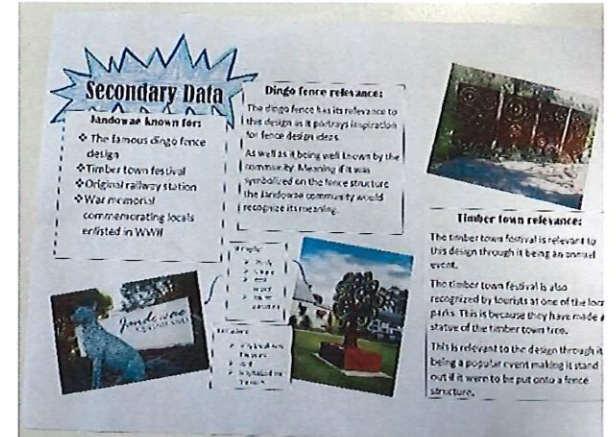 Secondary Data
Jandowae known for:
❖ The famous dingo fence
design
❖ Timber town festival
❖ Original railway station
❖ War memorial
commemorating locals
enlisted in WWII
Dingo fence relevance:
The dingo fence has its relevance to
this design as it portrays inspiration
for fence design ideas.
As well as it being well known by the
community. Meaning if it was
symbolized on the fence structure
the Jandowae community would
recognize its meaning.
Timber town relevance:
The timber town festival is relevant to
this design through it being an annual
event.
The timber town festival is also
recognized by tourists at one of the
parks. This is because they have made a
statue of the timber town tree.
This is relevant to the design through it
being a popular event making it stand
out if it were to be put onto a fence
structure.
Jandowae